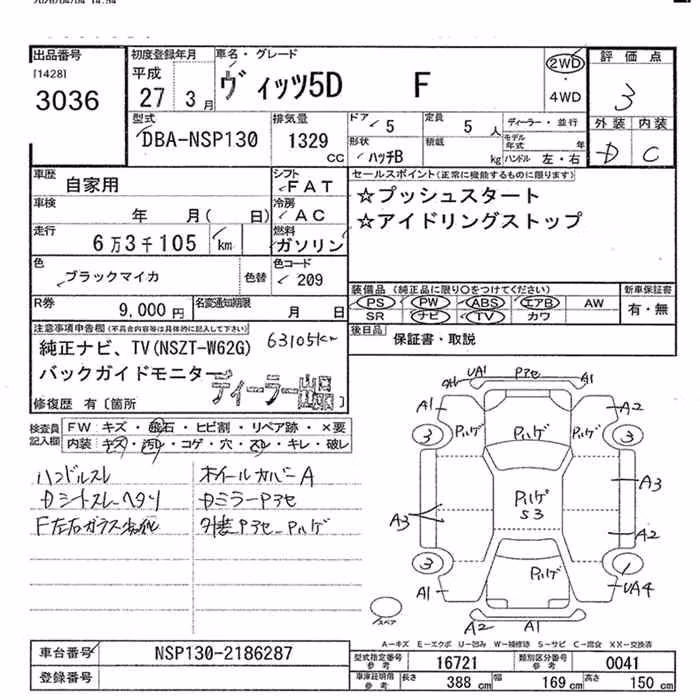 出品番号
[1428]
3036
初度登録年月
平成
27 3月
車名・グレード
ヴィッツ5D F
2WD
・
4WD
評価点
3
外装 内装
D C
型式
DBA-NSP130
排気量
1329
CC
ドア 5
定員 5 人
ディーラー・並行
形状 ハッチB
積載 kg
モデル年式 年
ハンドル 左・右
車歴 自家用
シフト FAT
車検 年 月( 日)
冷房 AC
走行 6万3千105 km
燃料 ガソリン
色 ブラックマイカ 色替
色コード 209
R券 9,000円
名変通知期限 月 日
セールスポイント(正常に機能するものに限ります)
☆プッシュスタート
☆アイドリングストップ
装備品(純正品に限り○をつけてください)
PS PW ABS エアB AW
SR ナビ TV カワ
新車保証書
有・無
後日品 保証書・取説
注意事項申告欄(不具合内容等は具体的に記入して下さい)
純正ナビ、TV(NSZT-W62G) 63105km
バックガイドモニター
ディーラー出品
修復歴 有〔箇所 〕
検査員記入欄
FW キズ・飛石・ヒビ割・リペア跡・×要
内装 キズ・汚レ・コゲ・穴・スレ・キレ・破レ
ハンドルスレ
ホイールカバーA
Dシートスレーヘタリ
DミラーPアセ
F左右ガラス
外装Pアセ-Pハゲ
UA1 Pアセ A1
A1 A2
Pハゲ Pハゲ Pハゲ
3 3
A3
Pハゲ
S3
A3
A2
3 1
Pハゲ
A1 UA4
A2 A1
スペア
A-キズ E-エクボ U-凹み W-補修跡 S-サビ C-腐食 XX-交換済
車台番号 NSP130-2186287
登録番号
型式指定番号 参考 16721
類別区分番号 参考 0041
車庫証明用 参考 長さ 388 cm 幅 169 cm 高さ 150 cm